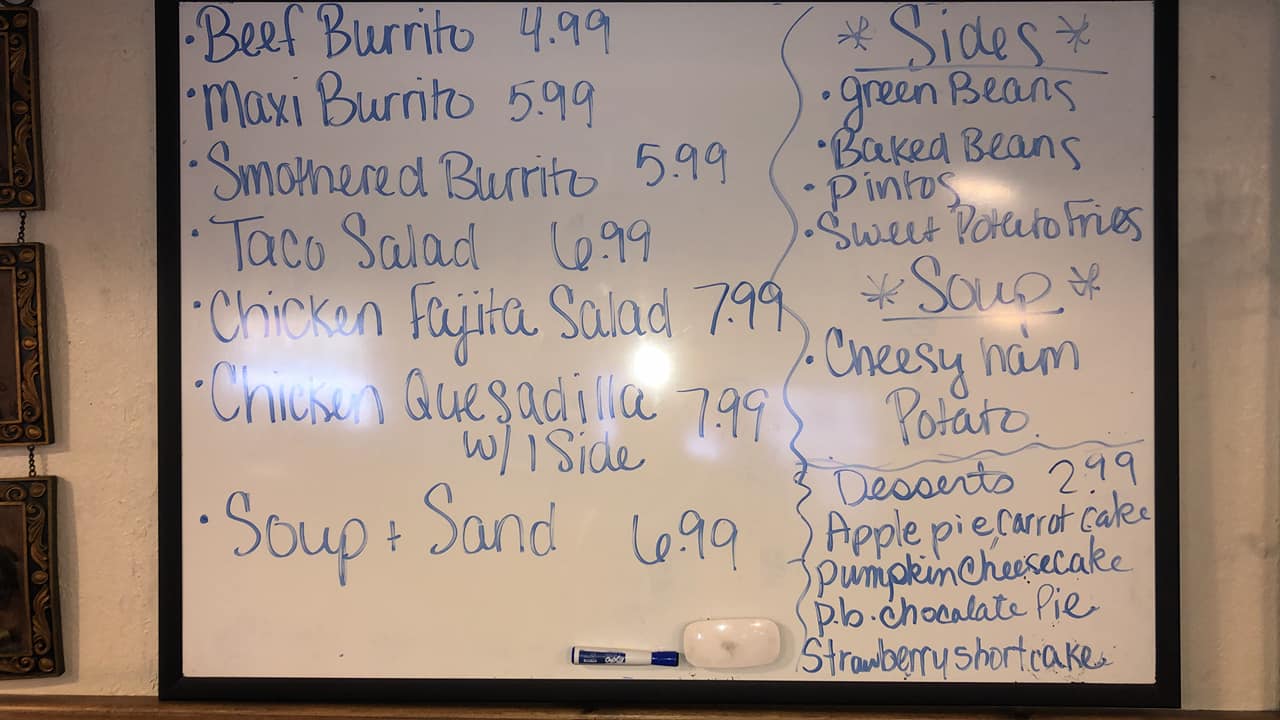 ·Beef Burrito 4.99
·Maxi Burrito 5.99
·Smothered Burrito 5.99
·Taco Salad 6.99
·Chicken Fajita Salad 7.99
·Chicken Quesadilla 7.99
w/ 1 Side
·Soup + Sand 6.99
*Sides*
·green Beans
·Baked Beans
·pintos
·Sweet Potato Fries
*Soup*
·Cheesy ham
Potato
Desserts 2.99
Apple pie, Carrot Cake
pumpkin Cheesecake
p.b. chocolate Pie
Strawberry shortcake